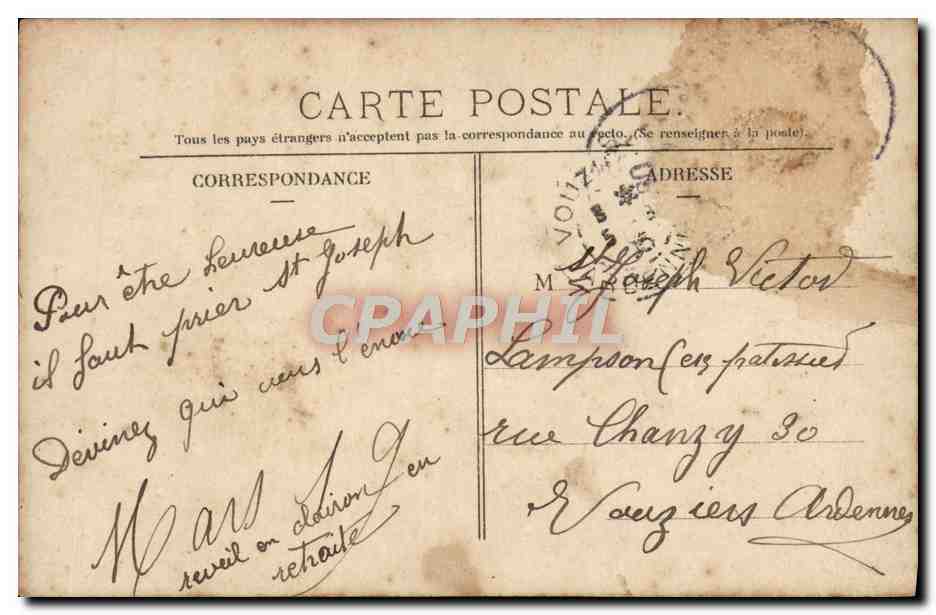 CARTE POSTALE.
Tous les pays étrangers n'acceptent pas la correspondance au recto. (Se renseigner à la poste).
CORRESPONDANCE
Pour être heureuse
il faut prier St Joseph
Devinez qui vous l'énonce
Mars
reveil en clairon en
retraite
ADRESSE
VOUZIERS
M Joseph Victor
Lampson (ex patissier
rue Chanzy 30
Vouziers Ardennes
CPAPHIL